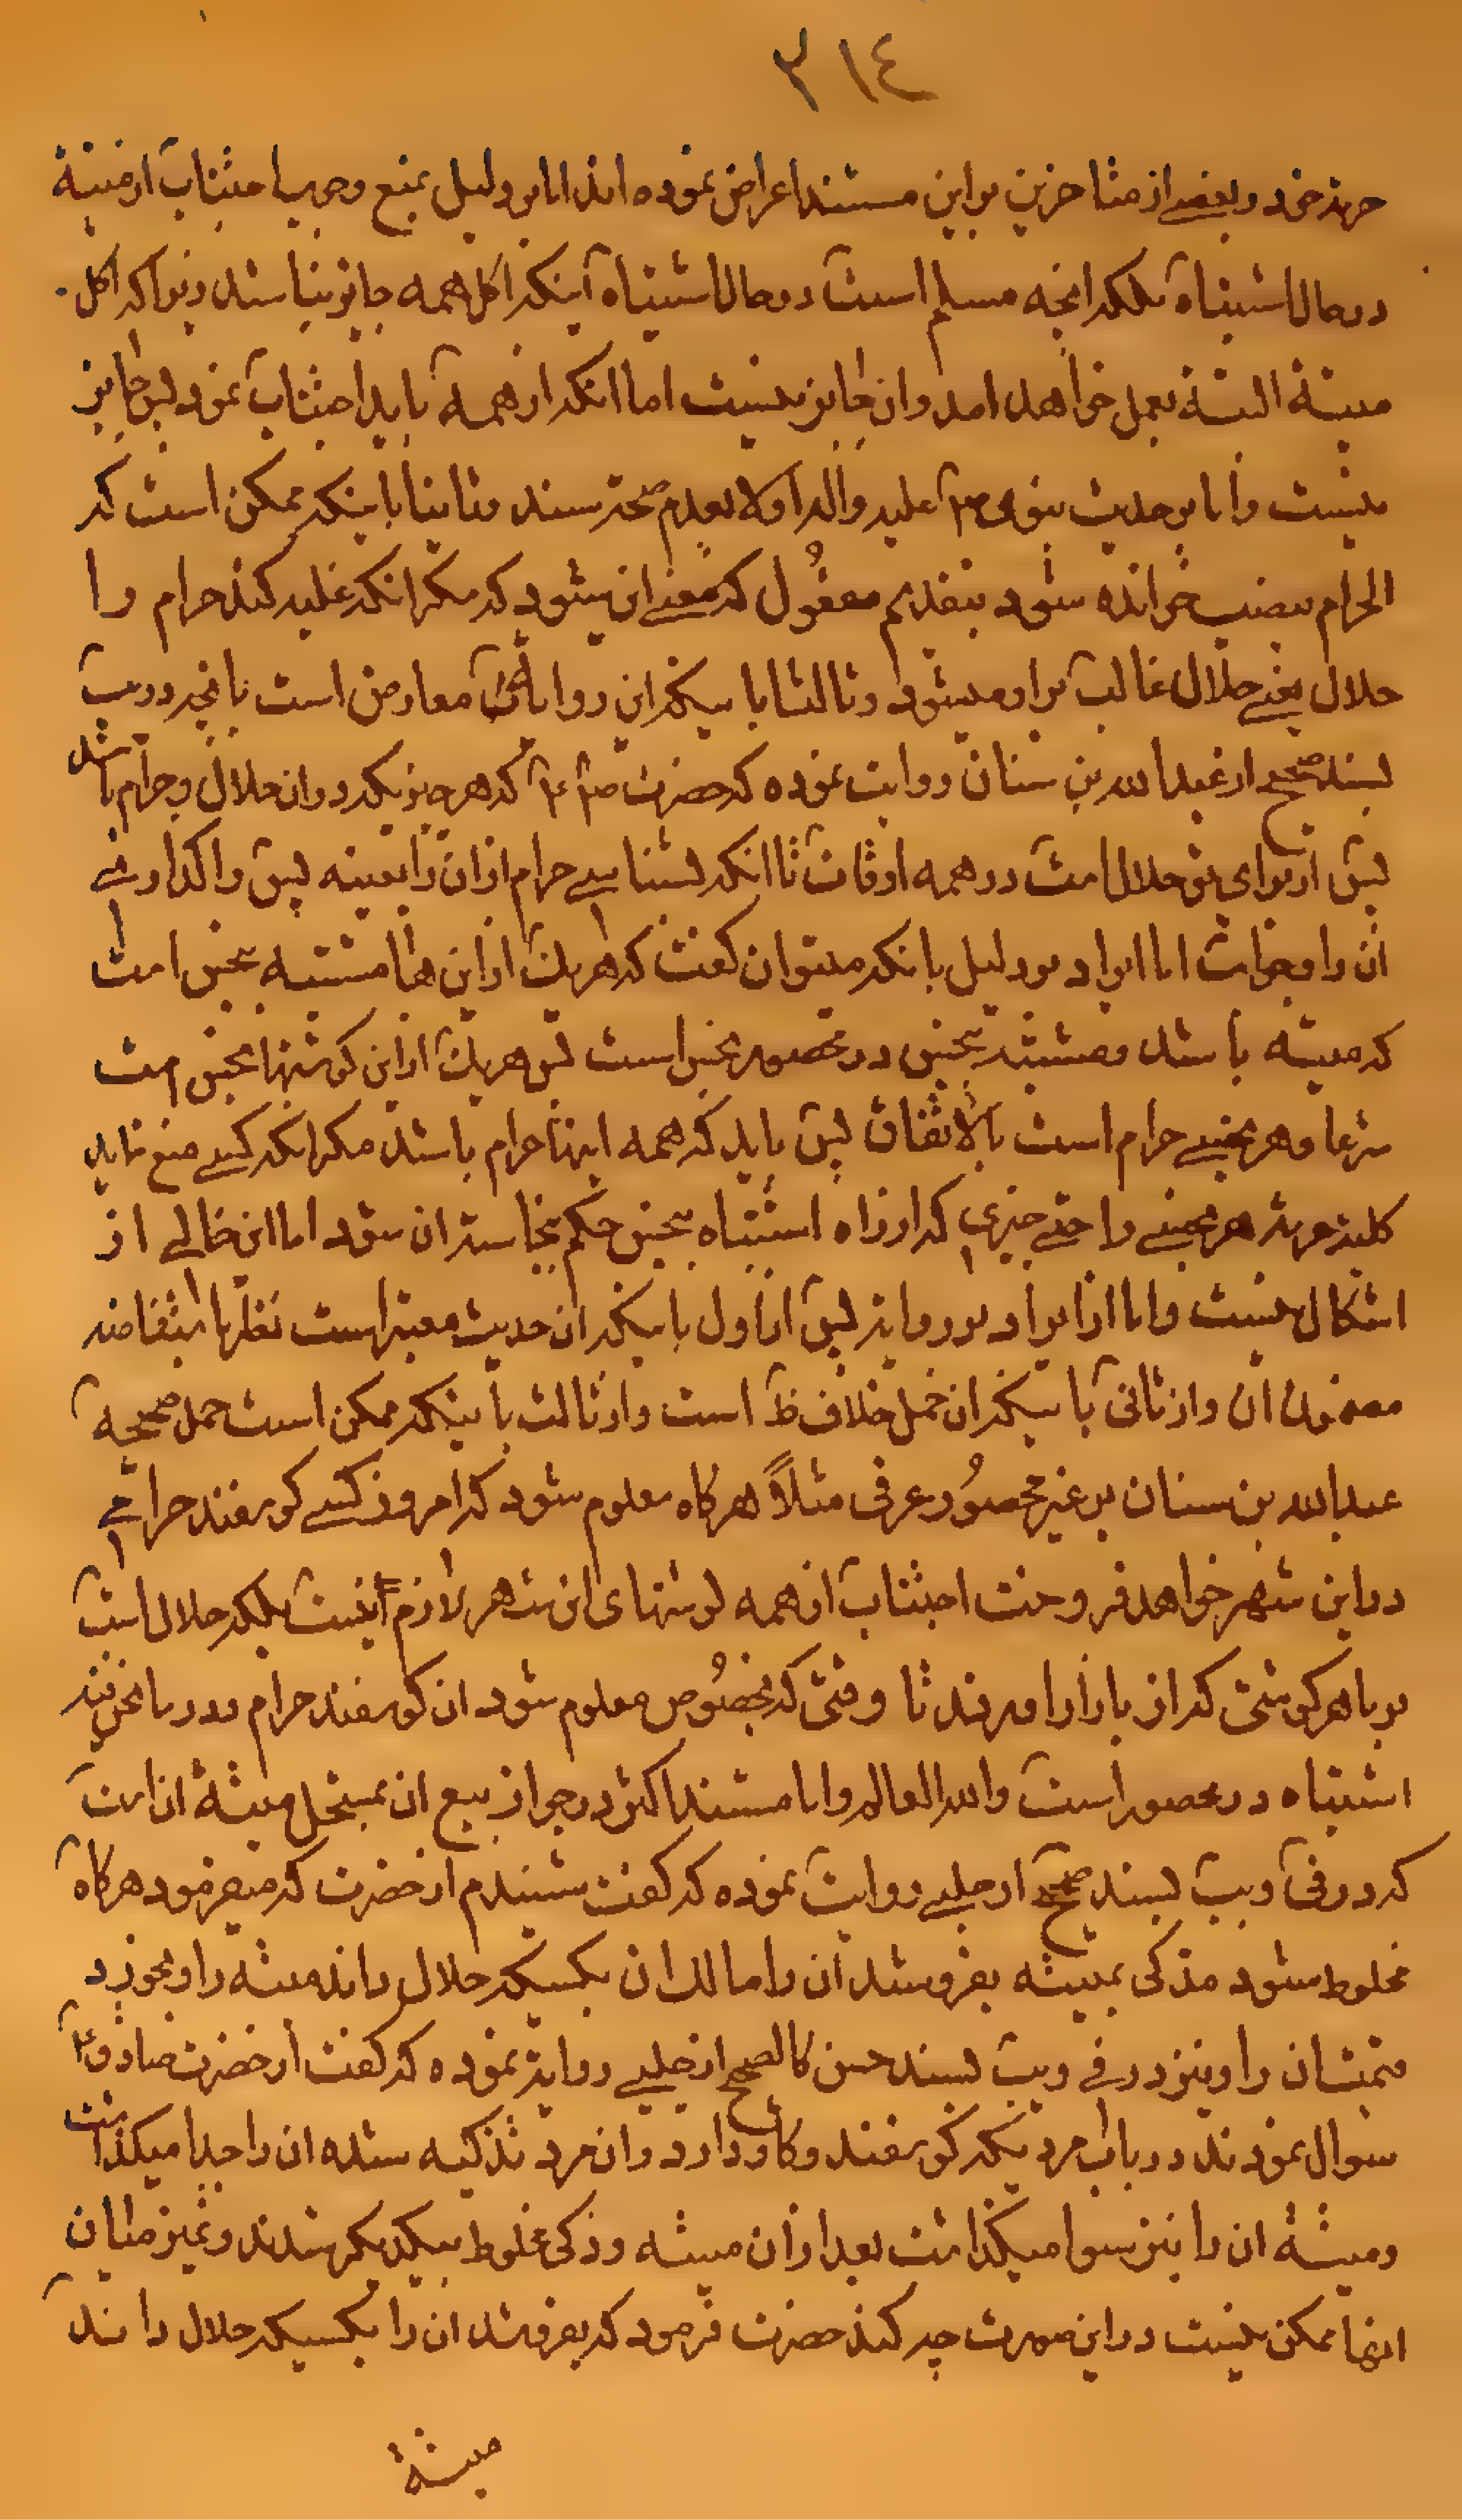 ٣١٤
حرمة خود و بعضی از متاخرین براین مستند اعراض نموده اند اما بر دلیل بمنع وجوب اجتناب از میتة
در حال اشتباه بلکه انچه مسلم است در حال اشتباه اینکه اکل همه جایز نباشد زیرا که اکل
میتة البتة بعمل خواهد امد و ان جایز نیست اما انکه از همه باید اجتناب نمود پس جایز
نیست و اما بر حدیث نبوی ص علیه واله اولا بعدم صحة سند و ثانیا باینکه ممکن است که
الحرام بنصب خوانده شود بتقدیم مفعول که معنے ان میشود که مکر انکه غلبه کند حرام را
حلال یعنے حلال غالب بر او میشود و ثالثا باینکه این روایات معارض است بانچه در یب
بسند صحیح از عبدالله بن سنان روایت نموده که حضرت ص ع که هر چیزیکه در ان حلال و حرام باشد
پس از برای تو حلال است در همه اوقات تا انکه بشناسے حرام از ان را بعینه پس واکذارے
ان را و جواب اما ایراد بر دلیل بانکه میتوان کفت که هریک از این ها مشتبه بنجس است
که میته باشد و مشتبه بنجس در محصور نجس است پس هریک از این کوشتها نجس است
شرعا و هر نجسے حرام است بالاتفاق پس باید که همه اینها حرام باشد مکر انکه کسے منع نماید
کلیة حرمة هر نجسے را حتے چیزی که از راه اشتباه بنجس حکم بنجاست ان شود اما این خالے از
اشکال نیست و اما از ایراد بر روایة پس از اول باینکه ان حدیث معتبر است نظر باعتضاد
مضمون ان و از ثانی باینکه ان حمل خلاف ظ است و از ثالث باینکه ممکن است حمل صحیحه
عبدالله بن سنان بر غیر محصور عرفی مثلاً هرکاه معلوم شود که امروز کسے کوسفند حرامے
در این شهر خواهد فروخت اجتناب از همه کوشتهای ان شهر لازم نیست بلکه حلال است
بر ما هر کوشتی که از بازار اورند تا وقتی که بخصوص معلوم شود ان کوسفند حرام و در ما نحن فیه
اشتباه در محصور است والله العالم و اما مستند اکثر در جواز بیع ان بمستحل میتة ان است
که در فی و یب بسند صحیح از حلبے روایت نموده که کفت شنیدم از حضرت که میفرمود هرکاه
مخلوط شود مذکی بمیته بفروشد ان را مالک ان بکسیکه حلال داند میته را و بخورد
قیمت ان را و نیز در فے و یب بسند حسن کالصحیح از حلبے روایة نموده که کفت از حضرت صادق ع
سوال نمودند در باب مردیکه کوسفند و کاو دارد و ان مرد تذکیه شده ان را جدا میکذاشت
و میتة ان را نیز سوا میکذاشت بعد از ان میته و ذکی مخلوط بیکدیکر شدند و تمیز میان
انها ممکن نیست در این صورت چه کند حضرت فرمود که بفروشد ان را بکسیکه حلال داند
میتة